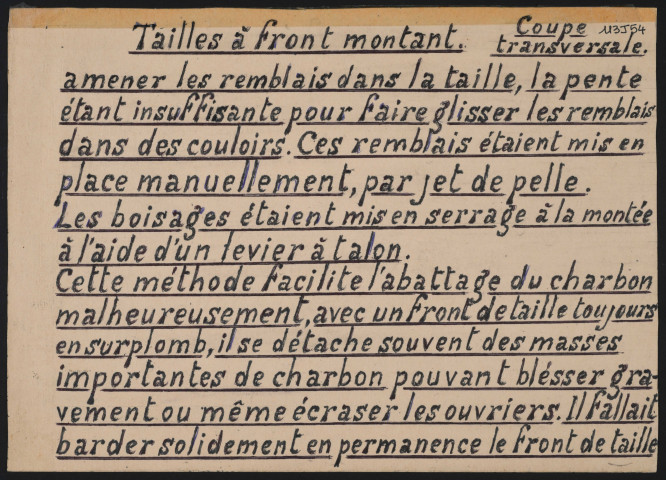 Tailles à front montant. Coupe transversale.
113J54
amener les remblais dans la taille, la pente
étant insuffisante pour faire glisser les remblais
dans des couloirs. Ces remblais étaient mis en
place manuellement, par jet de pelle.
Les boisages étaient mis en serrage à la montée
à l'aide d'un levier à talon.
Cette méthode facilite l'abattage du charbon
malheureusement, avec un front de taille toujours
en surplomb, il se détache souvent des masses
importantes de charbon pouvant blésser gra-
vement ou même écraser les ouvriers. Il fallait
barder solidement en permanence le front de taille